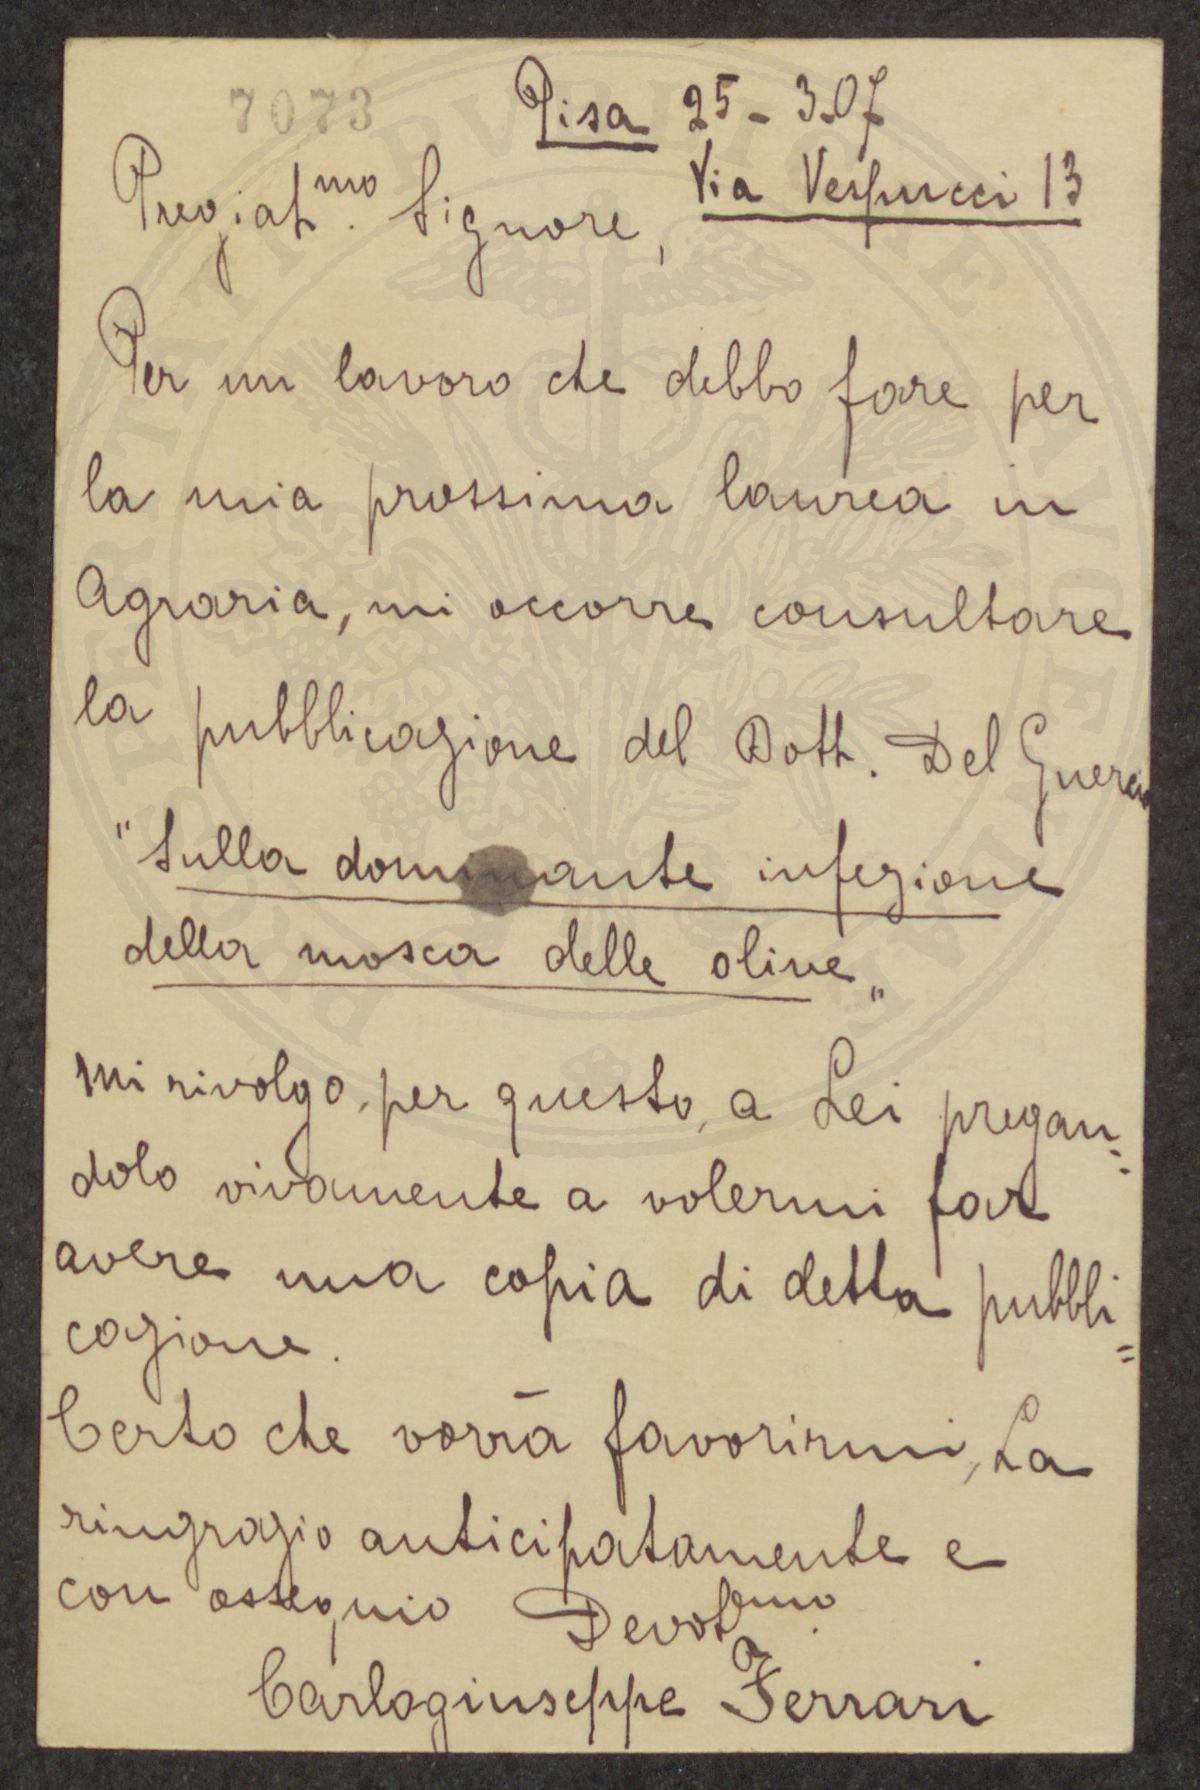 7073
Pisa 25-3.07
Via Vespucci 13
Pregiat.mo Signore,
Per un lavoro che debbo fare per
la mia prossima laurea in
Agraria, mi occorre consultare
la pubblicazione del Dott. Del Guercio
"Sulla dominante infezione
della mosca delle olive„
Mi rivolgo, per questo, a Lei pregan-
dolo vivamente a volermi far
avere una copia di detta pubbli=
cazione.
Certo che vorrà favorirmi, La
ringrazio anticipatamente e
con ossequio Devot.mo
Carlogiuseppe Ferrari